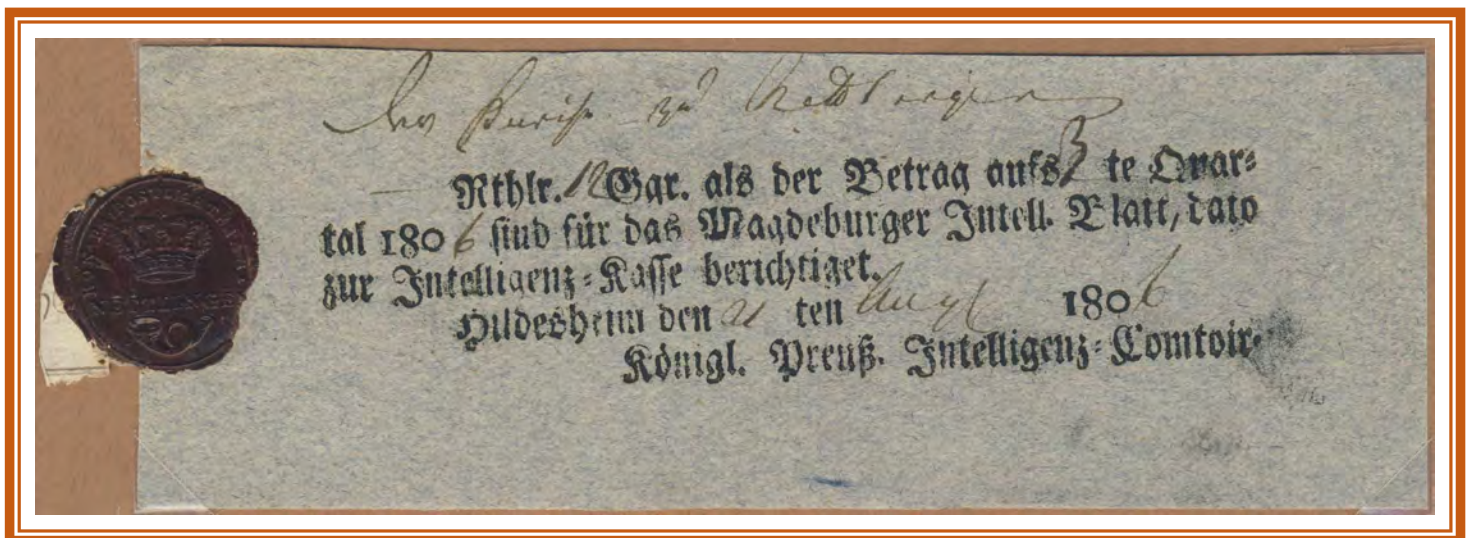 — Rthlr. 12 Ggr. als der Betrag aufs 3 te Quar-
tal 1806 sind für das Magdeburger Intell. Blatt, dato
zur Intelligenz-Kasse berichtiget.
Hildesheim den 21 ten Aug 1806
Königl. Preuß. Intelligenz-Comtoir.